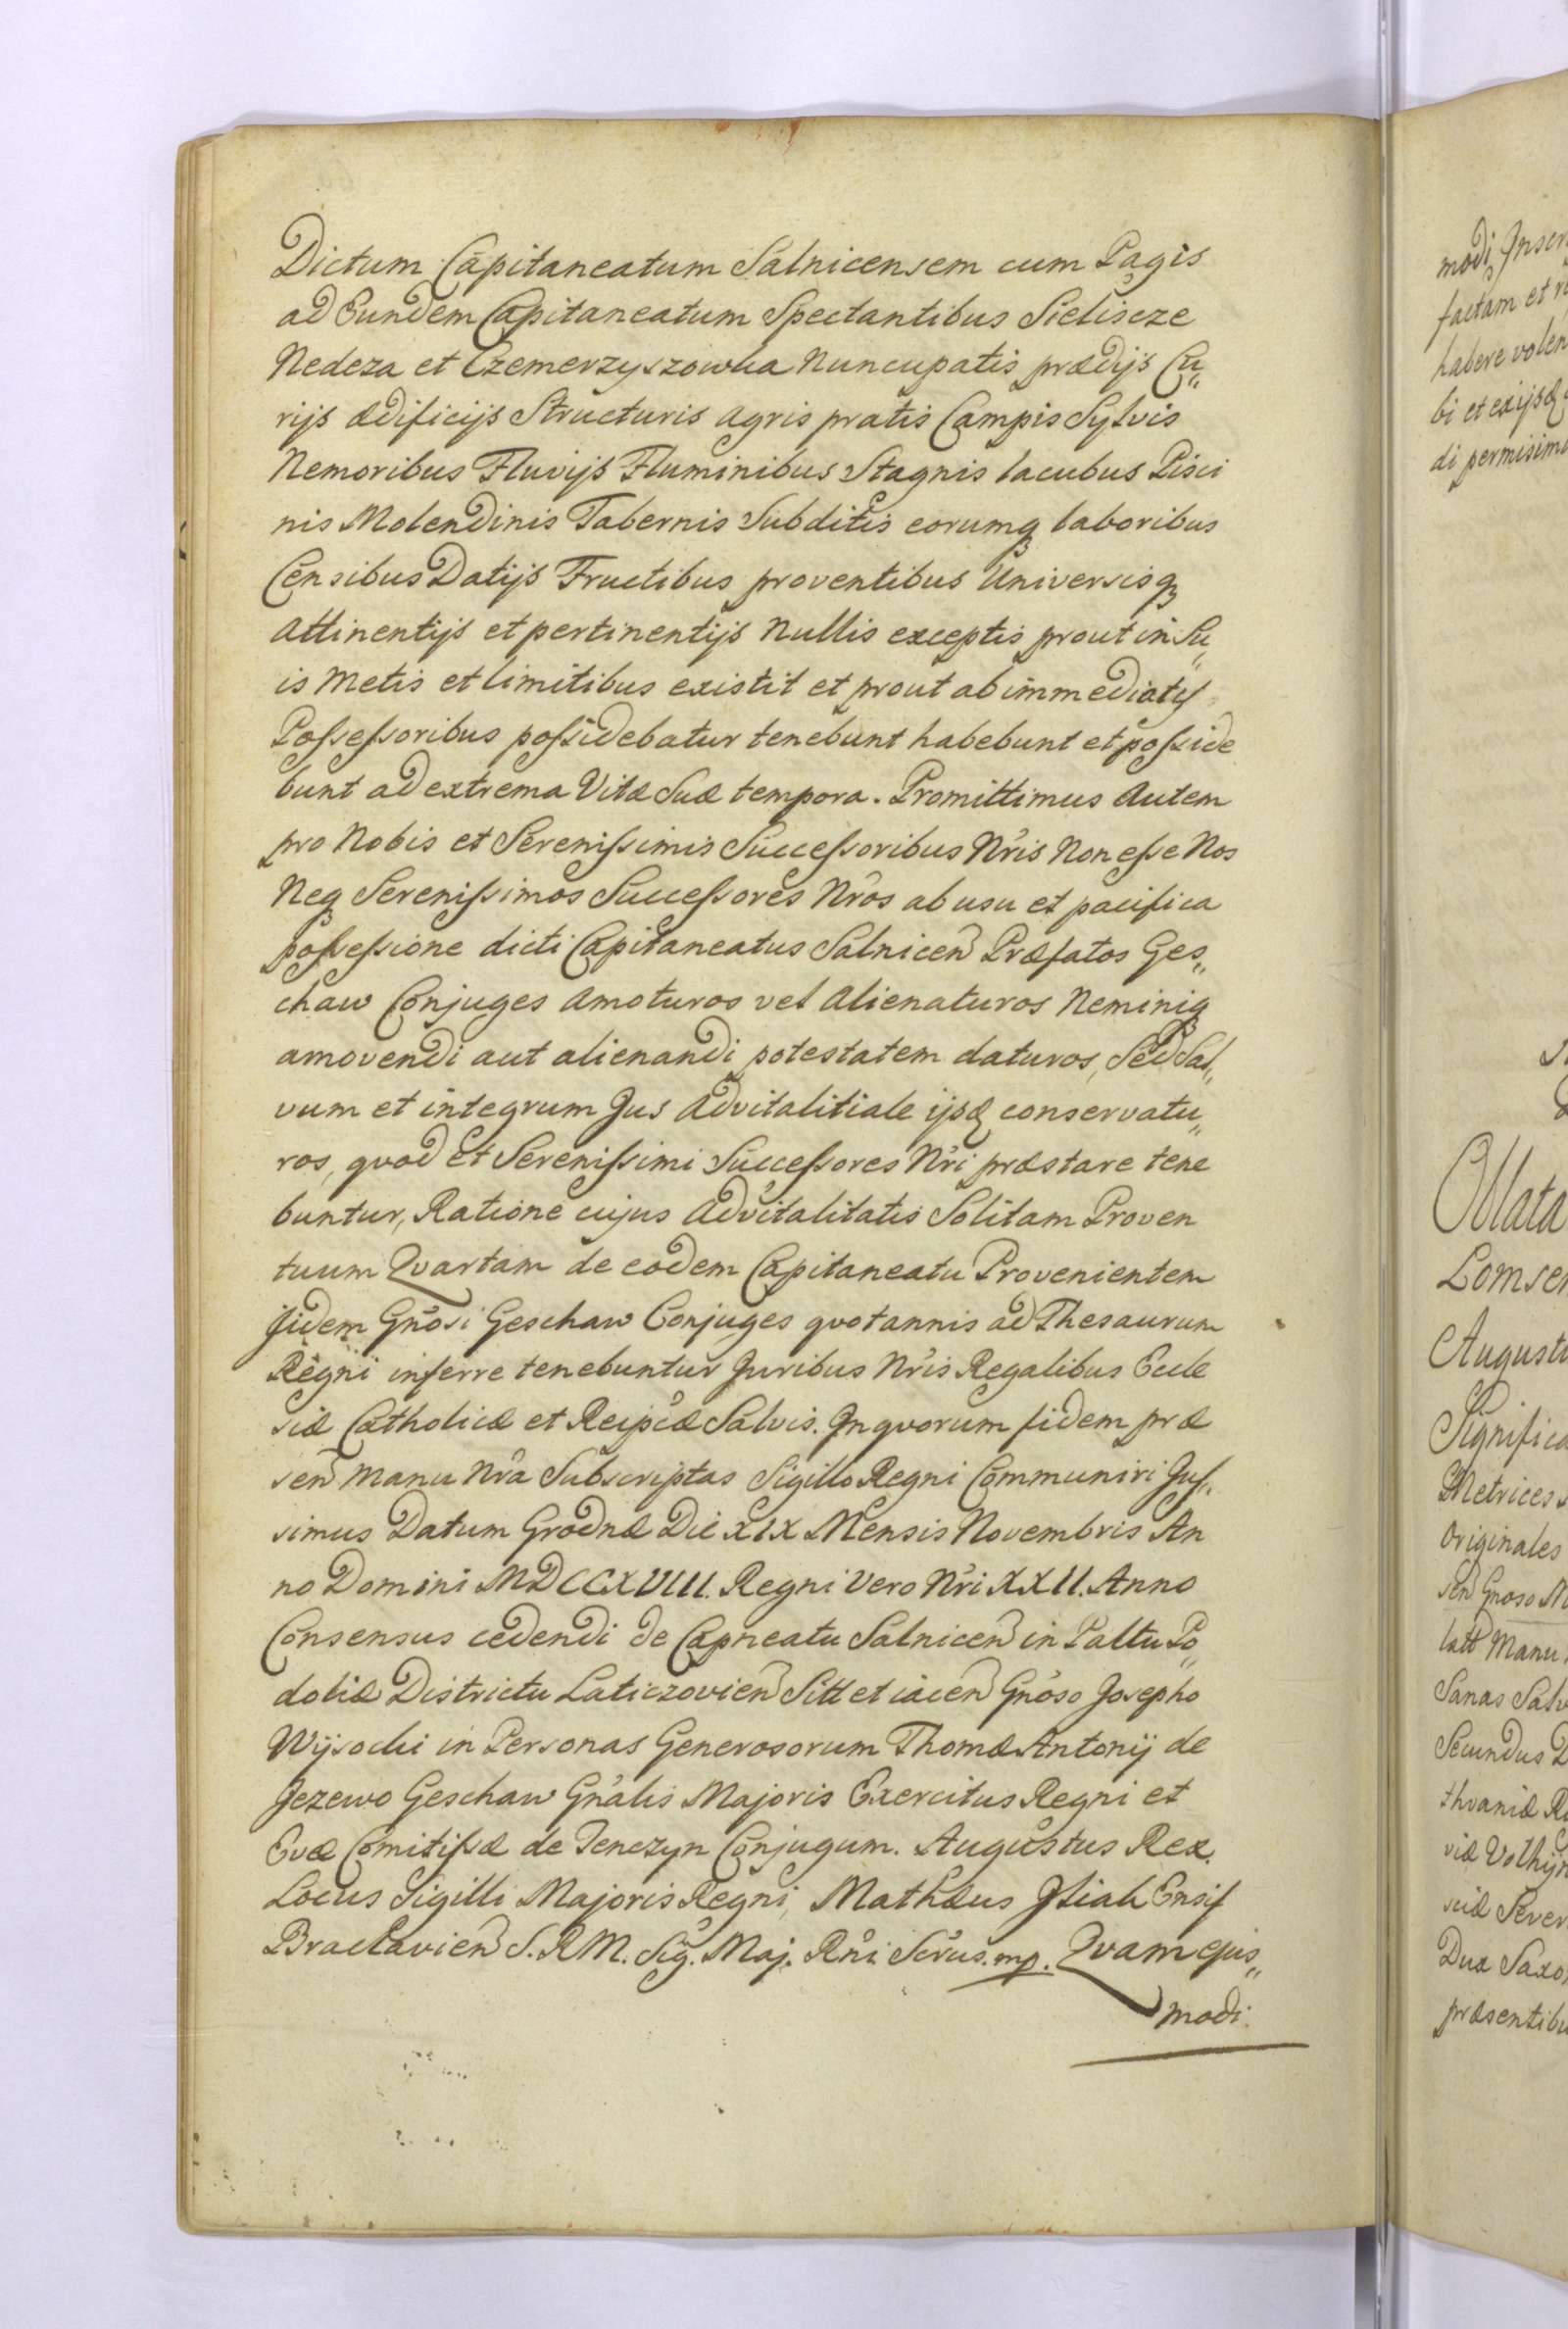 Dictum Capitaneatum Salnicensem cum Pagis
ad Eundem Capitaneatum Spectantibus Sieliscze
Nedeza et Czemerzyszowka Nuncupatis prædijs Cu„
rijs ædificijs Structuris agris pratis Campis Sylvis
Nemoribus Fluvijs Fluminibus Stagnis lacubus Pisci
nis Molendinis Tabernis Subditis eorumq laboribus
Censibus Datijs Fructibus proventibus Universisq
attinentijs et pertinentijs Nullis exceptis prout in Su„
is Metis et limitibus existit et prout ab immediatis
Possessoribus possidebatur tenebunt habebunt et posside
bunt ad extrema Vitæ Suæ tempora. Promittimus Autem
pro Nobis et Serenissimis Successoribus Nr̃is Non esse Nos
Neq Serenissimos Successores Nr̃os ab usu et pacifica
possessione dicti Capitaneatus Salnicen Præfatos Ges„
chaw Conjuges amoturos vel Alienaturos Neminiq
amovendi aut alienandi potestatem daturos, Sed Sal„
vum et integrum Jus Advitalitiale ijsd conservatu„
ros, quod et Serenissimi Successores Nr̃i præstare tene
buntur, Ratione cujus Advitalitatis Solitam Proven
tuum Quartam de eodem Capitaneatu Provenientem
Jidem Gnõsi Geschaw Conjuges quotannis ad Thesaurum
Regni inferre tenebuntur Juribus Nr̃is Regalibus Eccle
siæ Catholicæ et Reipcæ Salvis. Jn quorum fidem præ
sen Manu Nr̃a Subscriptas Sigillo Regni Communiri Jus„
simus Datum Grodnæ Die XIX Mensis Novembris An
no Domini MDCCXVIII. Regni Vero Nr̃i XXII. Anno
Consensus cedendi de Capneatu Salnicen in Paltu Po„
doliæ Districtu Laticzovien Sitt et iacen Gnõso Josepho
Wÿsocki in Personas Generosorum Thomæ Antonij de
Jezewo Geschaw Gnãlis Majoris Exercitus Regni et
Evæ Comitissæ de Tenczyn Conjugum. Augustus Rex.
Locus Sigilli Majoris Regni, Mathæus Ensif
Braclavien S. R M. Sig. Maj. Rñi Scrũs. mp. Quam ejus„
modi.
modi
factam et
bi et
Oblata
Originales
Manu
Sanas
Secundus
Dux